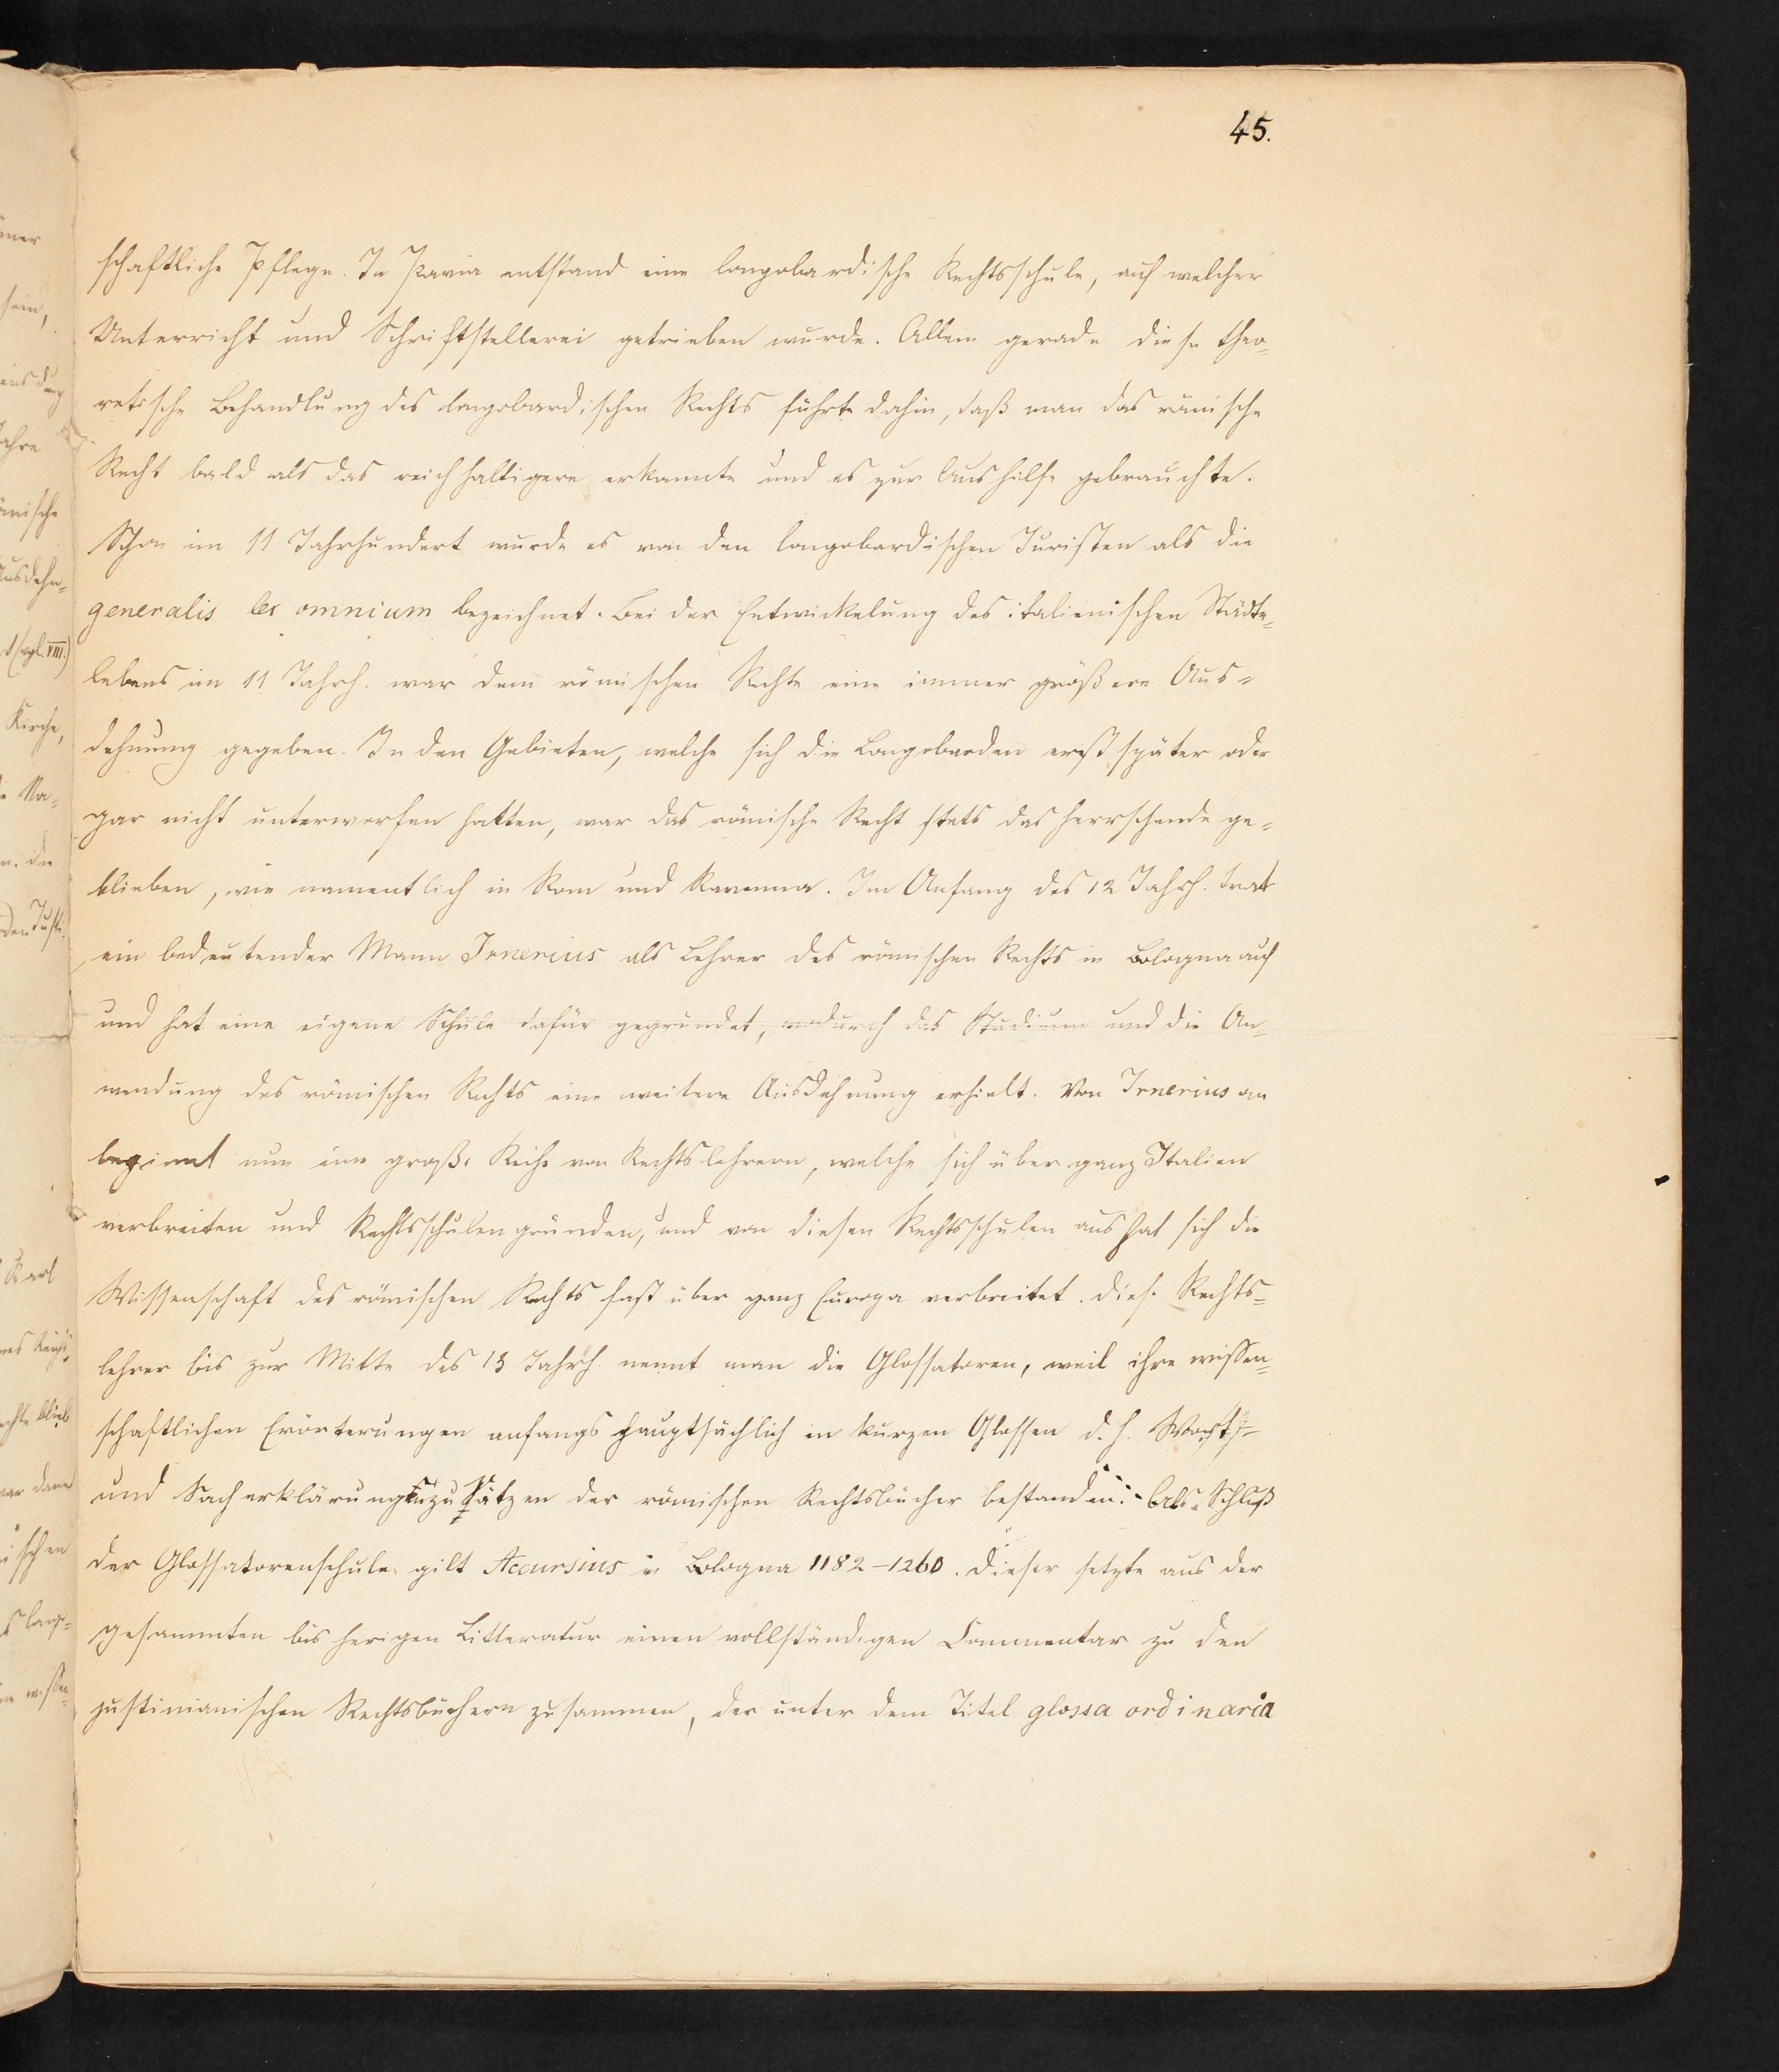 45.
schaftliche Pflege. In Pavia entstand eine longobardische Rechtsschule, auf welcher
Unterricht und Schriftstellerei getrieben wurde. Allein gerade diese theo-
retische Behandlung des longobardischen Rechts führte dahin, daß man das römische
Recht bald als das reichhaltigere erkannte und es zur Aushilfe gebrauchte.
Schon im 11 Jahrhundert wurde es von den longobardischen Juristen als die
generalis lex omnium bezeichnet. Bei der Entwickelung des italienischen Städte-
lebens im 11 Jahrh. war dem römischen Rechte eine immer größere Aus-
dehnung gegeben. In den Gebieten, welche sich die Longobarden erst später oder
gar nicht unterworfen hatten, war das römische Recht stets das herrschende ge-
blieben, wie namentlich in Rom und Ravenna. Im Anfang des 12 Jahrh. trat
ein bedeutender Mann Irnerius als Lehrer des römischen Rechts in Bologna auf
und hat eine eigene Schule dafür gegründet, wodurch das Studium und die An-
wendung des römischen Rechts eine weitere Ausdehnung erhielt. Von Irnerius an
beginnt nun eine große Reihe von Rechtslehrern, welche sich über ganz Italien
verbreiten und Rechtsschulen gründen, und von diesen Rechtsschulen aus hat sich die
Wissenschaft des römischen Rechts fast über ganz Europa verbreitet. Diese Rechts-
lehrer bis zur Mitte des 13 Jahrh. nennt man die Glossatoren, weil ihre wissen-
schaftlichen Erörterungen anfangs hauptsächlich in kurzen Glossen d. h. Wort-
und Sacherklärungen zu Sätzen der römischen Rechtsbücher bestanden. Als Schluß
der Glossatorenschule gilt Accursius in Bologna 1182-1260. Dieser setzte aus der
gesammten bisherigen Litteratur einen vollständigen Commentar zu den
justinianischen Rechtsbüchern zusammen, der unter dem Titel glossa ordinaria